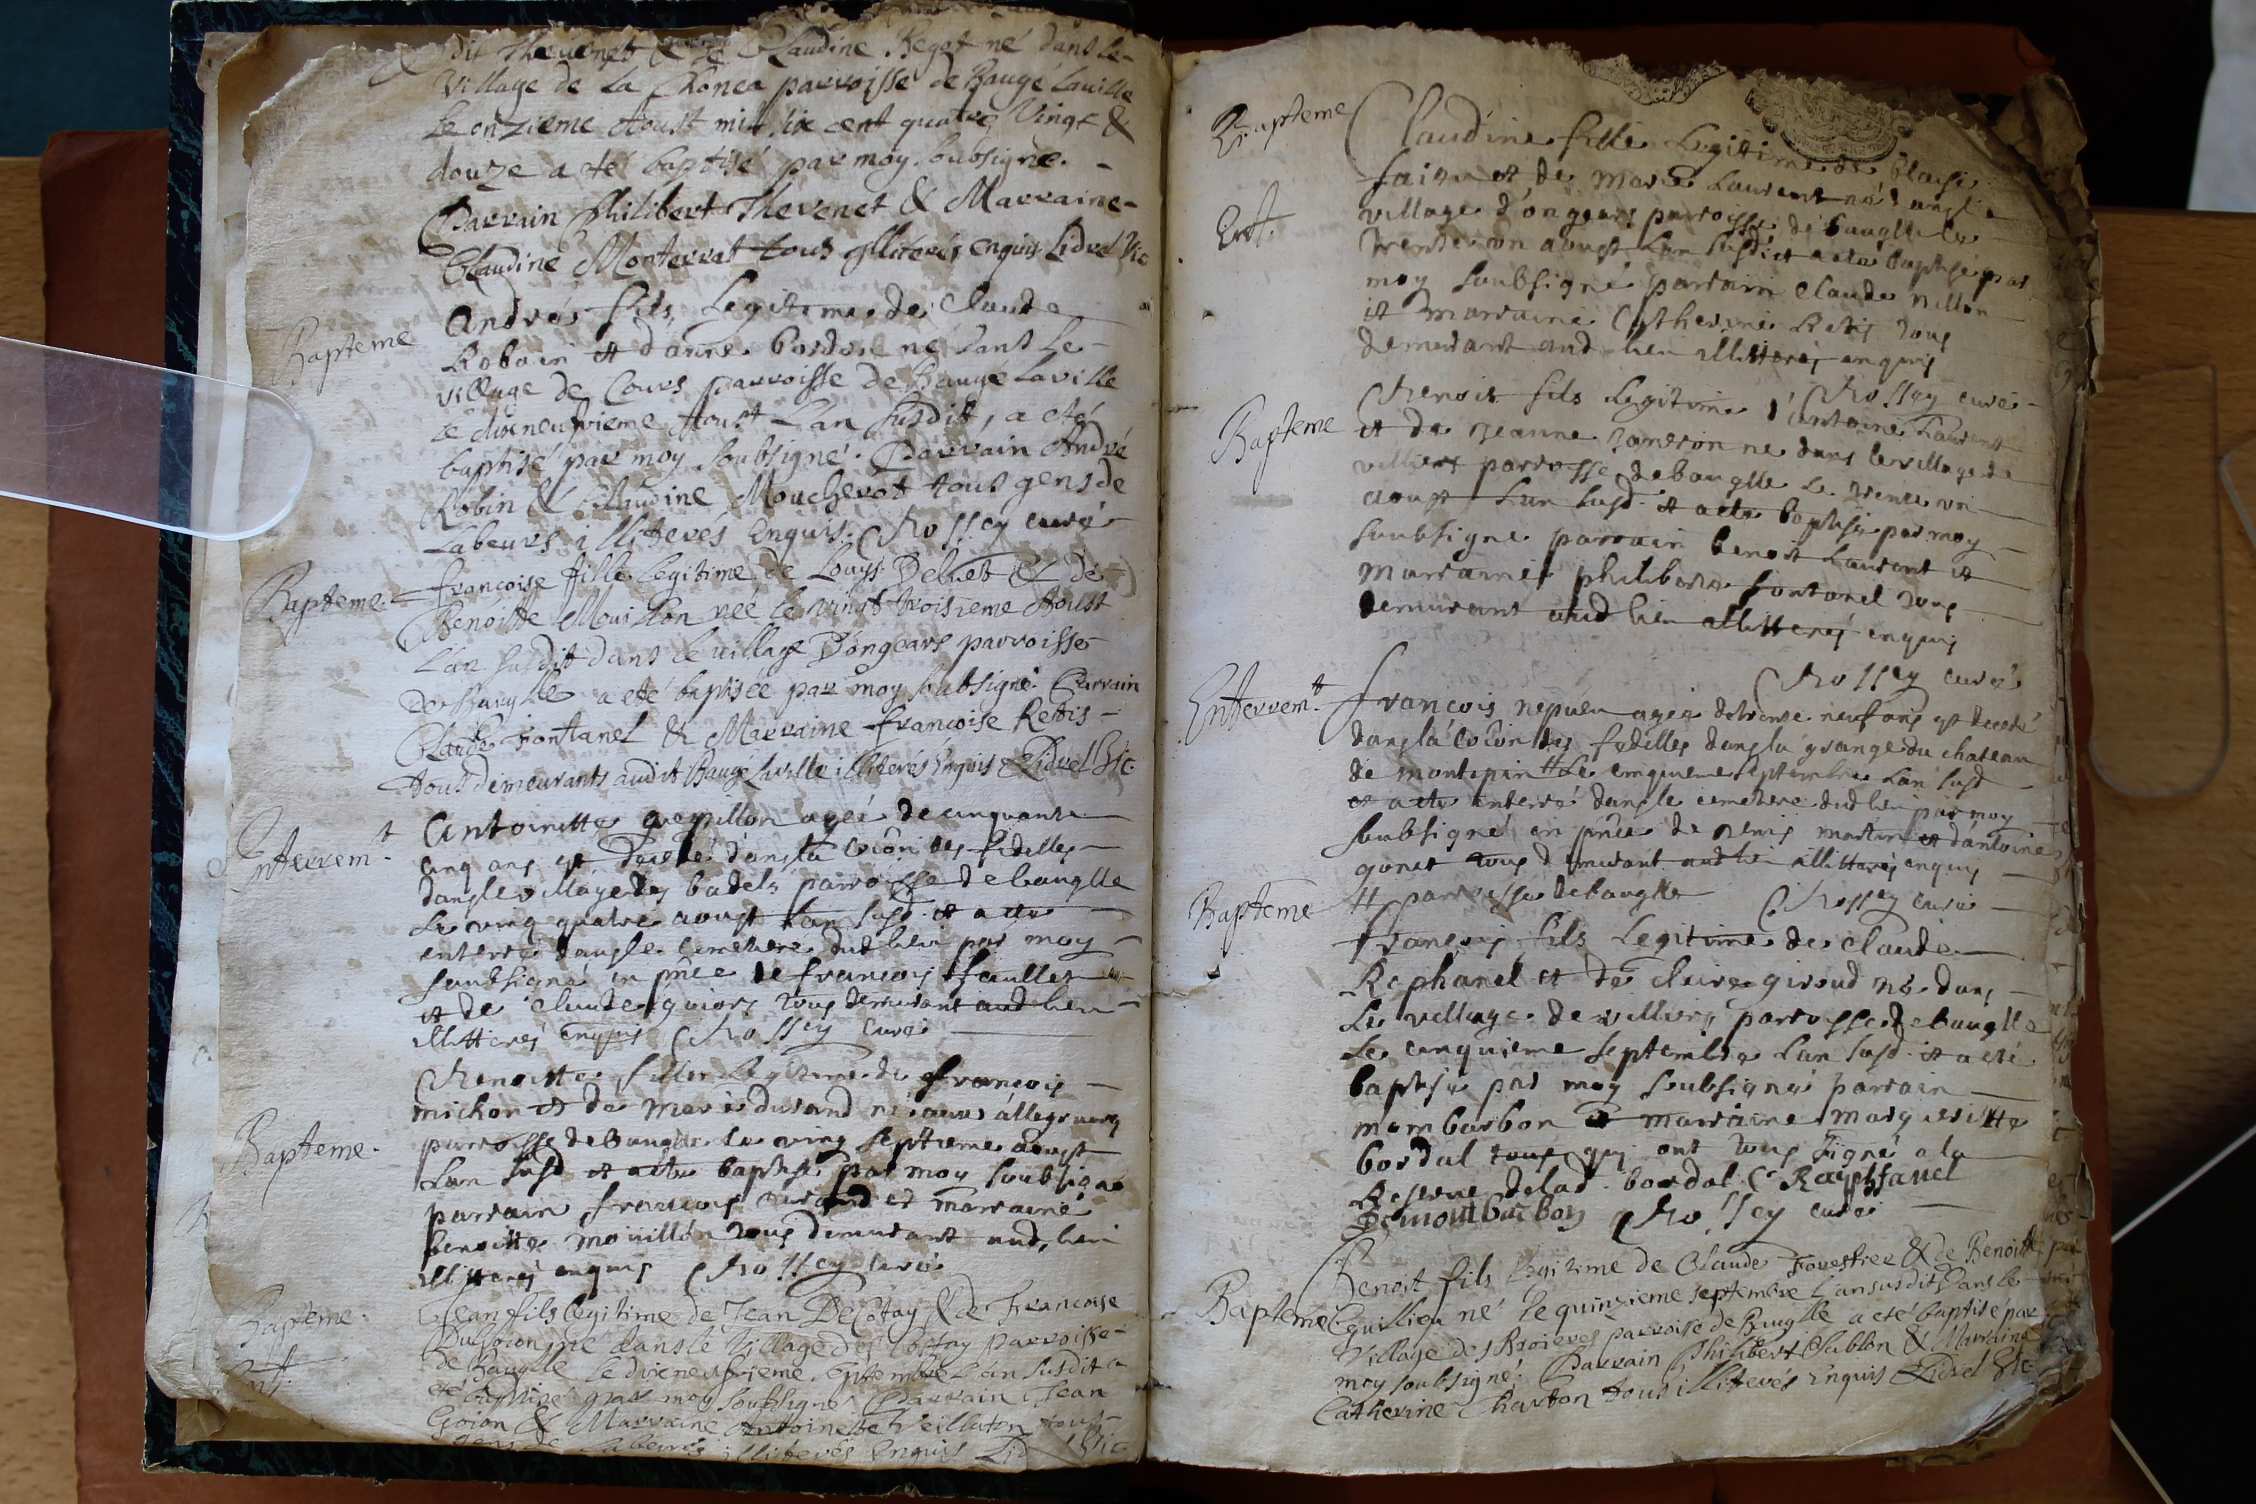 dit Thevenet & de Claudine Begot né dans le
Village de La Chonea parroisse de Baugé Laville
Le onzieme Aoust mil six cent quatre Vingt &
douze a été baptisé par moy soubsigné.
Parrain Philibert Thevenet & Marraine
Claudine Monterrat tous illiterés enquis Lidrel Vic
Bapteme
André fils Legitime de Claude
Robain et d'anne bordel né dans le
village de Cours parroisse de Bauge Laville
Le dixneufvieme Aoust L'an susdit, a eté
baptisé par moy soubsigné. Parrain André
Robin & Claudine Moucherot tous gens de
Labeurs illiterés Enquis. Rossey curé
Bapteme.
françoise fille Legitime de Louys Debet & de
Benoiste Mouillon née le vingt troisieme Aoust
L'an susdit dans le village D'ongears parroisse
de Bauglle a eté baptisée par moy soubsigné Parrain
Claude Fontanel & Marraine françoise Rettis
tous demeurants audit Baugé Laville illiterés Enquis Lidrel Vic
Enterremt.
Antoinette grepillon agée de cinquante
cinq ans et decedé dans la coion des fidelles
dans le village des badels parroisse de bauglle
Le ving quatre aoust L'an susd. et a ete
enterré dans le cemetiere dud lieu par moy
soubsigné en pnce de françois faulles
et de Claude guiors tous demurant aud lieu
illitterés enquis Rossey curé
Bapteme.
Benoitte fille Legitime de françois
michon et de Marie durand né aux allegrures
parroisse de Bauglle le ving septieme aoust
L'an susd et a ete baptisé par moy soubsigné
parrain françois durand et marraine
benoitte mouillon tous demurant aud. lieu
illitterés enquis Rossey curé
Bapteme.
Jean fils legitime de Jean De Cotay & de Francoise
né dans le Village des Cottay parroisse
de Bauglle le dixneufvieme septembre L'an susdit a
eté baptisé par moy soubsigné Parrain Jean
Goion & Marraine Antoinette Veillaton tous
gens de Labeurs illiterés Enquis Lidrel Vic
Bapteme
Claudine fille Legitime de Blaise
faitu et de Marie Laurent né dans le
Ent.
village d'ongears parroisse de bauglle le
trente un aoust L'an susdit et a ete baptisé par
moy soubsigné parrain Claude nillon
et marraine Catherine Retis tous
demurant aud lieu illitterés enquis
Rossey curé
Bapteme
Benoit fils Legitime d'antoine Laurent
et de Jeanne né dans le village de
villiers parroisse de bauglle Le trente un
aoust L'an susd. et a ete baptisé par moy
soubsigné parrain benoit Laurent et
marraine philiberte fontanel tous
demurant aud lieu illitterés enquis
Rossey curé
Enterremt.
françois nepueu agée de trente neuf ans et decedé
dans la coion des fidelles dans la grange du chateau
de montepin # Le cinquieme septembre L'an susd
et a ete enterré dans le cemetiere dud lieu par moy
soubsigné en pnce de Denis martin et d'antoine
gonet tous demurant aud lieu illitterés enquis
# parroisse de bauglle Rossey curé
Bapteme
françois fils Legitime de claude
Rephanel et de claire giroud né dans
Le village de villiers parroisse de bauglle
Le cinquieme septembre L'an susd. et a eté
baptisé par moy soubsigné parrain
mombarbon et marraine marguerite
bordal tous qui ont tous signé a la
Reserve de lad. bordal C Rayphanel
Demontbarbon Rossey curé
Bapteme
Benoit fils Legitime de Claude Forestier & de Benoitte
Eguillien né le quinzieme septembre L'an susdit Dans le
Village des Broieres parroisse de Bauglle a eté baptisé par
moy soubsigné. Parrain Philibert Sablon & Marraine
Catherine Charton tous illiterés Enquis Lidrel Vic